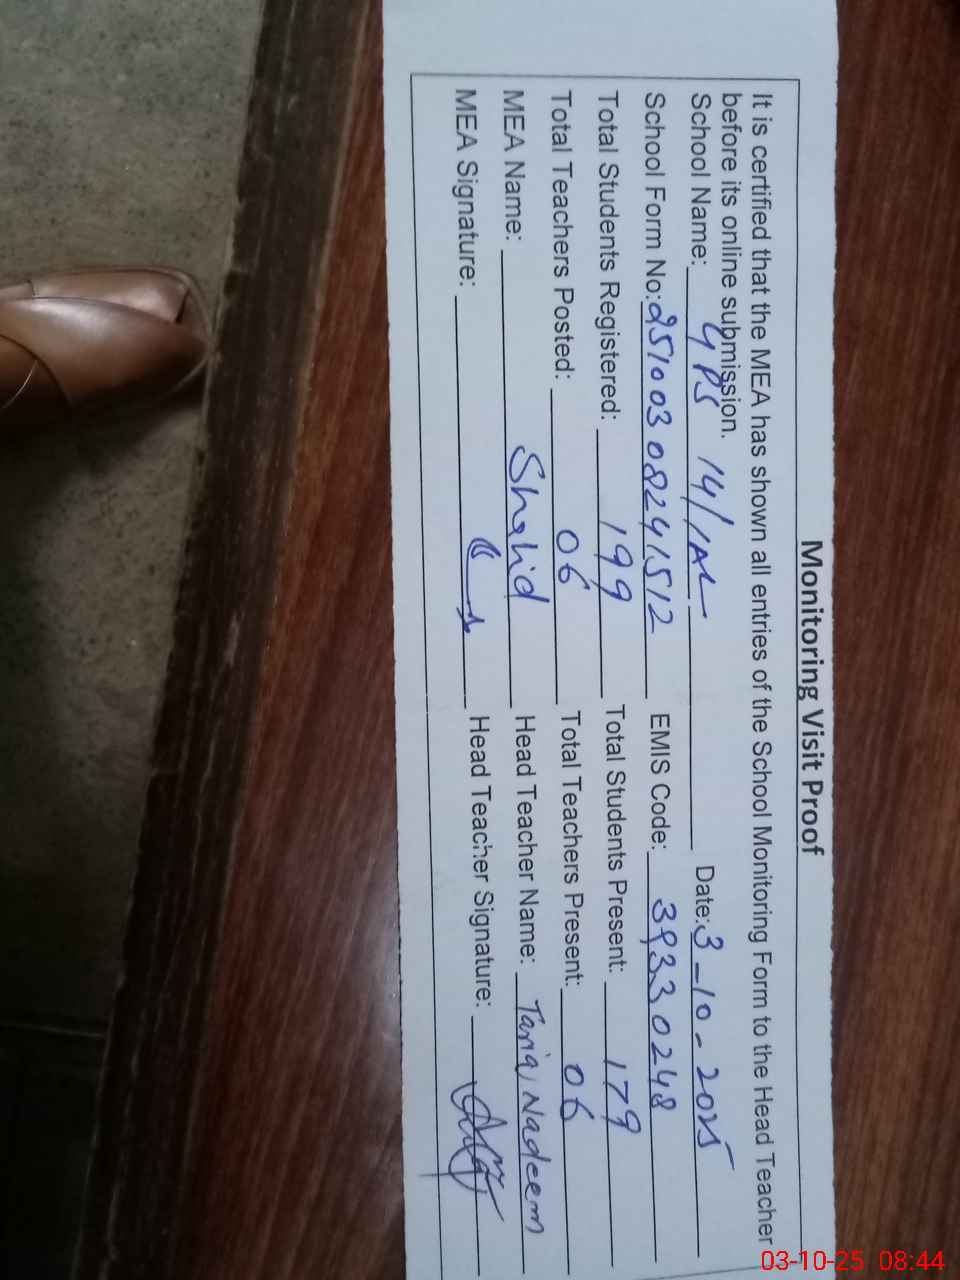 Monitoring Visit Proof
It is certified that the MEA has shown all entries of the School Monitoring Form to the Head Teacher
before its online submission.
School Name: GPS 14/1AL Date: 3-10-2025
School Form No: 25100308241512 EMIS Code: 39330248
Total Students Registered: 199 Total Students Present: 179
Total Teachers Posted: 06 Total Teachers Present: 06
MEA Name: Shahid Head Teacher Name: Tariq Nadeem
MEA Signature: Head Teacher Signature:
03-10-25 08:44